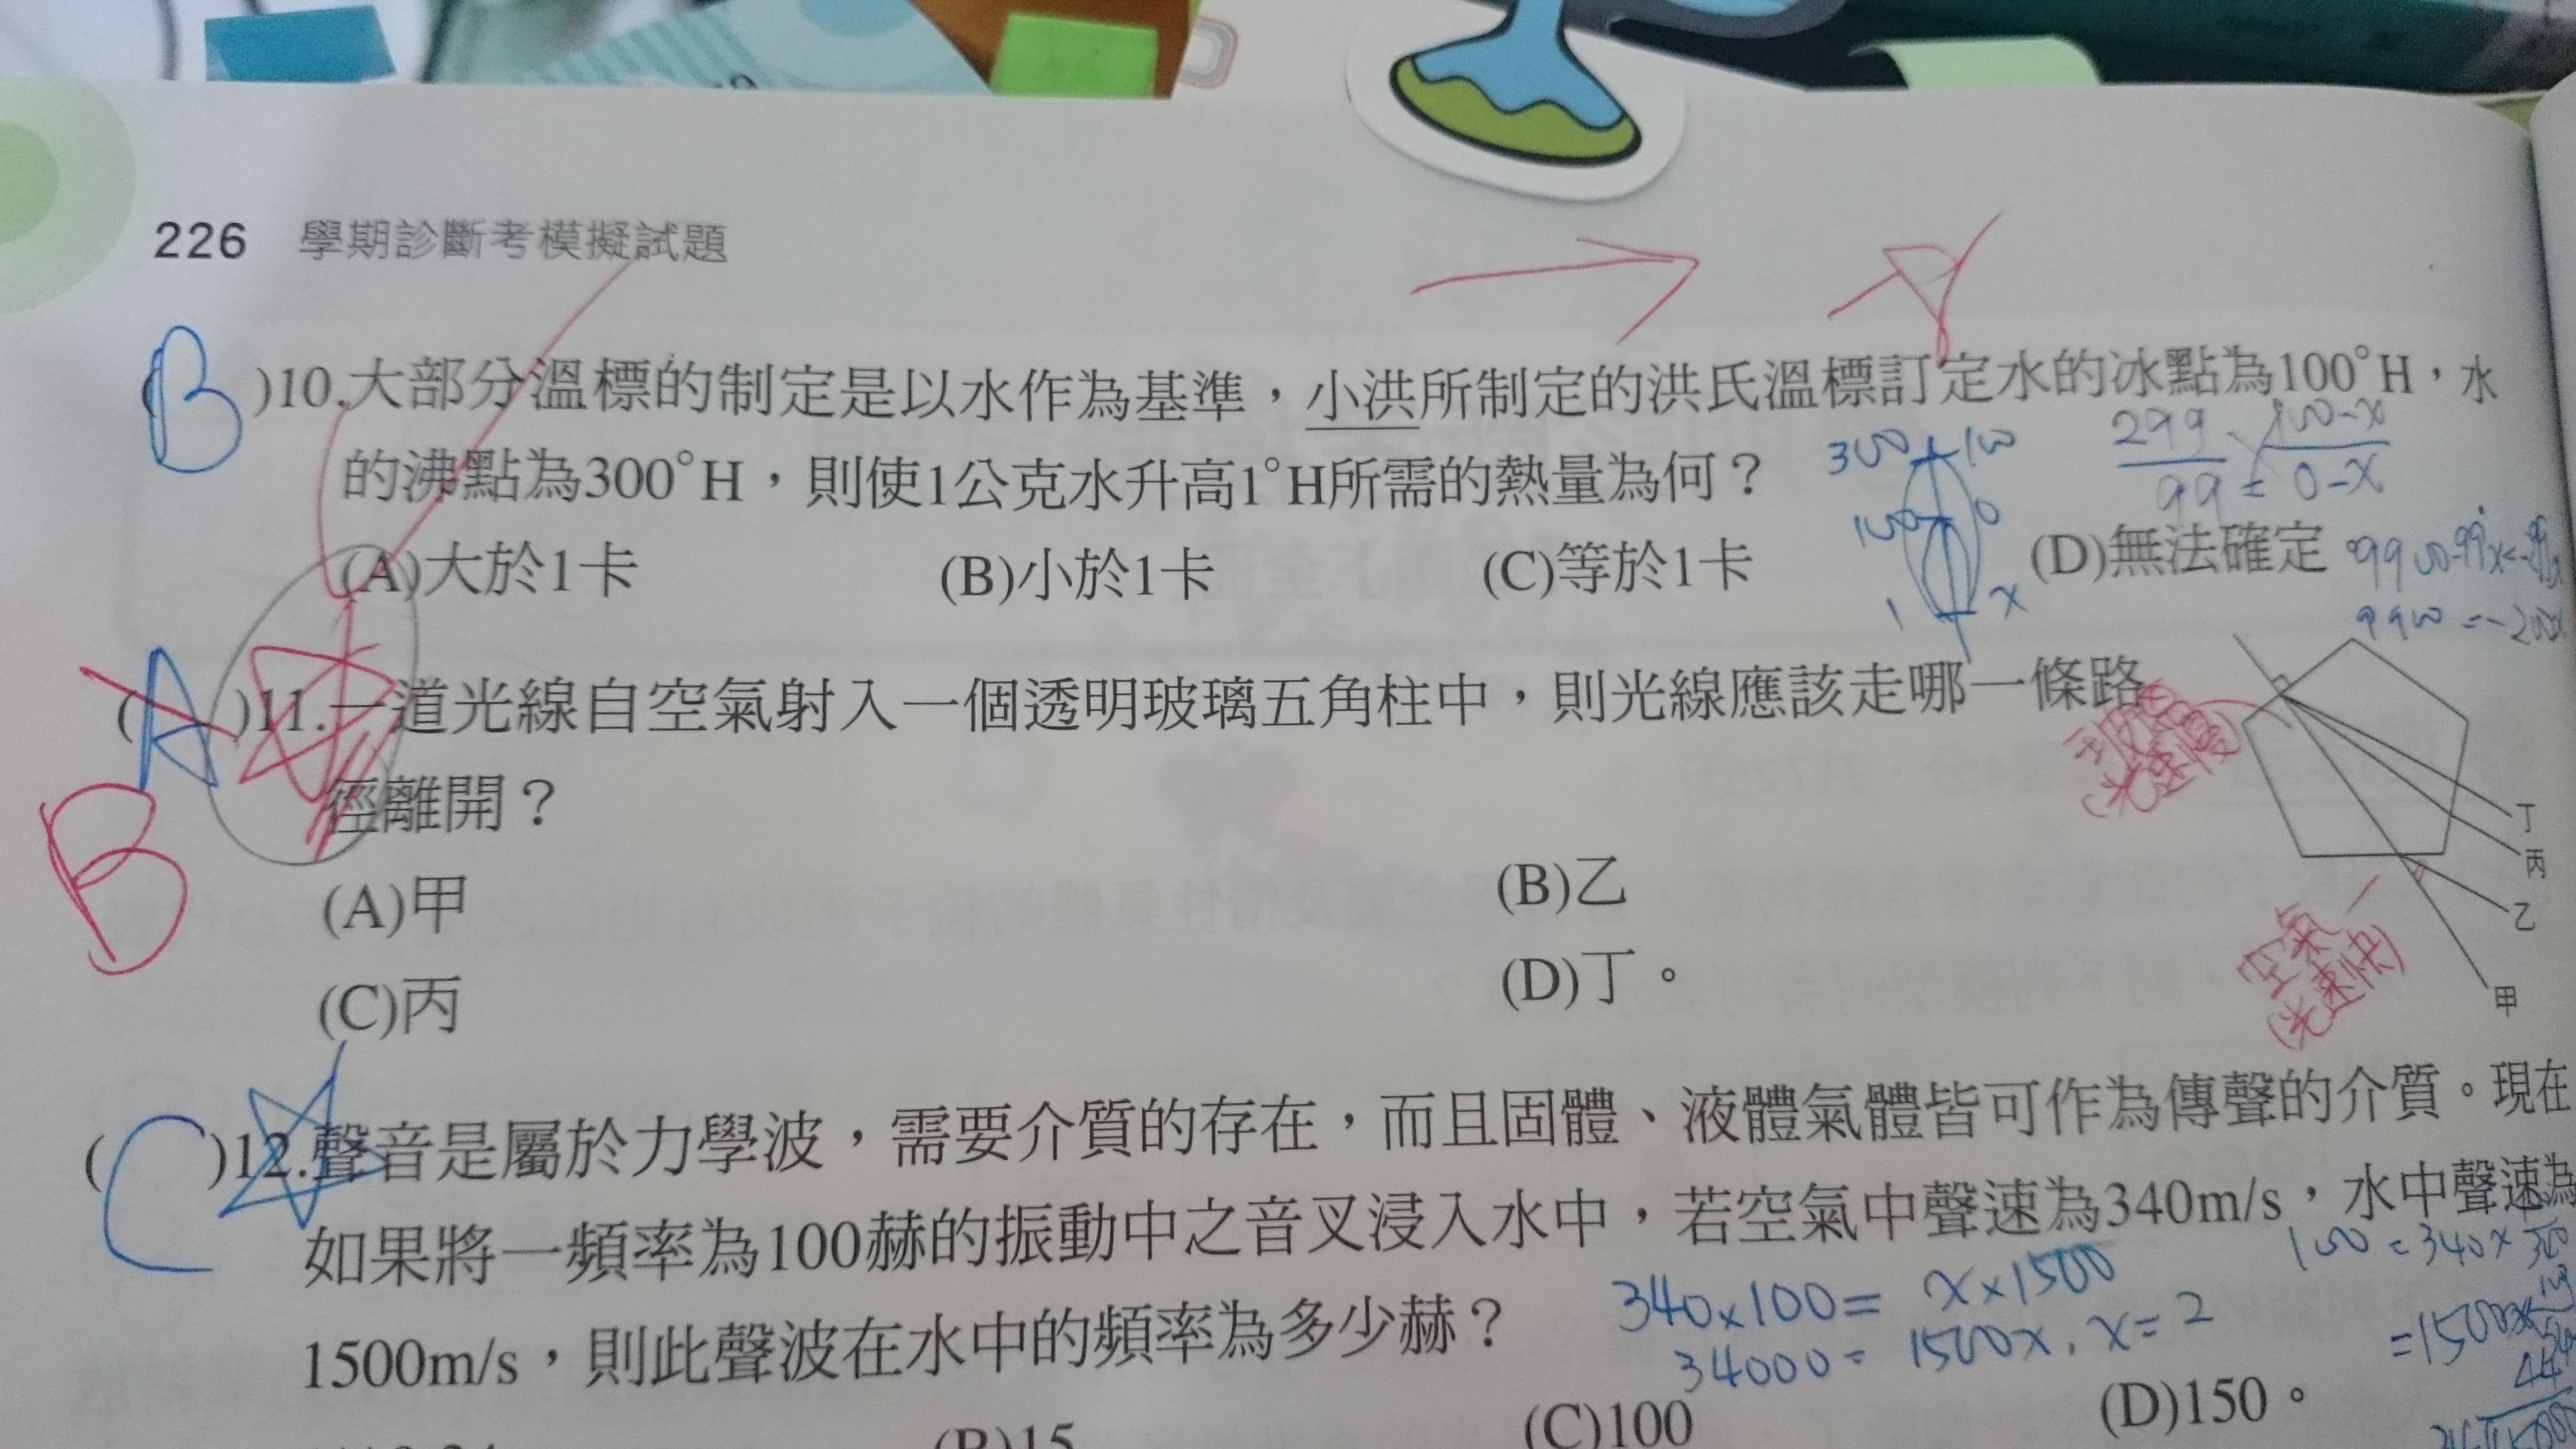 226 學期診斷考模擬試題
(B)10.大部分溫標的制定是以水作為基準，小洪所制定的洪氏溫標訂定水的冰點為100°H，水
的沸點為300°H，則使1公克水升高1°H所需的熱量為何？
(A)大於1卡 (B)小於1卡 (C)等於1卡 (D)無法確定
300 100
100 0
1 x
299 100-x
99 = 0-x
(A)11.一道光線自空氣射入一個透明玻璃五角柱中，則光線應該走哪一條路
徑離開？
B
(A)甲 (B)乙
(C)丙 (D)丁。
玻璃
(光速慢)
丁
丙
乙
甲
空氣
(光速快)
(C)12.聲音是屬於力學波，需要介質的存在，而且固體、液體氣體皆可作為傳聲的介質。現在
如果將一頻率為100赫的振動中之音叉浸入水中，若空氣中聲速為340m/s，水中聲速為
1500m/s，則此聲波在水中的頻率為多少赫？
340×100= x×1500
34000= 1500x, x=2
(B)15 (C)100 (D)150。